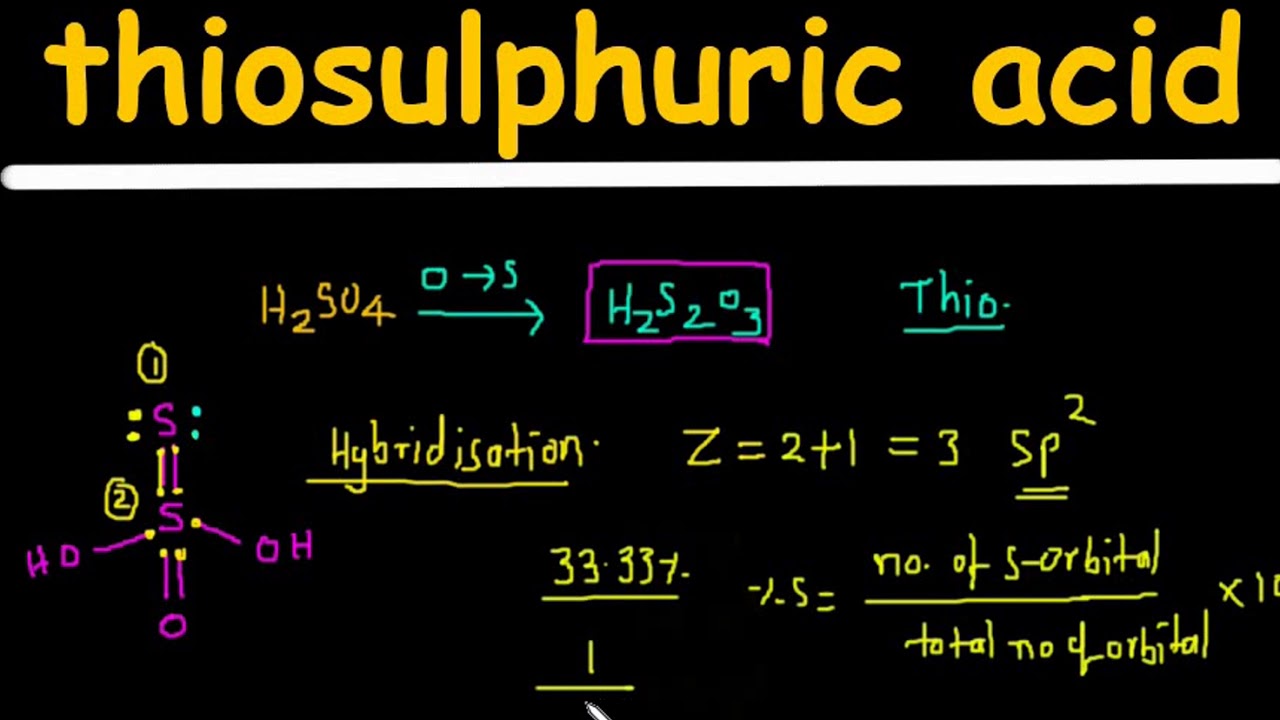 thiosulphuric acid
H₂SO₄ O → S → H₂S₂O₃ Thio.
①
: S :
Hybridisation. Z = 2+1 = 3 Sp²
②
S
HO OH
O
33.33%.
% S = no. of s-orbital / total no of orbital × 10
1